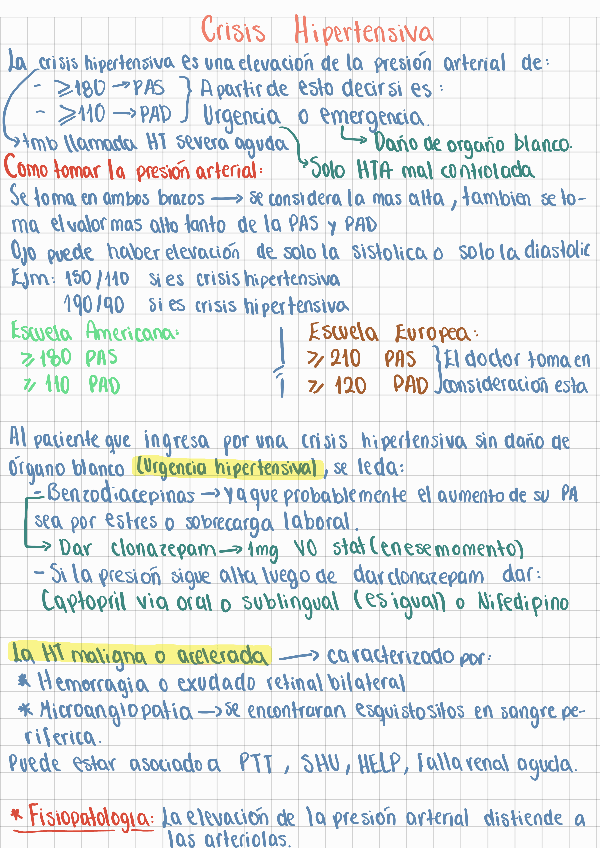 Crisis Hipertensiva
La crisis hipertensiva es una elevación de la presión arterial de:
- ≥180 → PAS } A partir de esto decir si es:
- ≥110 → PAD } Urgencia o emergencia.
→ tmb llamada HT severa aguda → Daño de organo blanco.
Como tomar la presión arterial: → Solo HTA mal controlada
Se toma en ambos brazos → se considera la mas alta, tambien se to-
ma el valor mas alto tanto de la PAS y PAD
Ojo puede haber elevación de solo la sistolica o solo la diastolic
Ejm: 150/110 si es crisis hipertensiva
190/90 si es crisis hipertensiva
Escuela Americana: Escuela Europea:
≥ 180 PAS ≥ 210 PAS } El doctor toma en
≥ 110 PAD ≥ 120 PAD } consideración esta
Al paciente que ingresa por una crisis hipertensiva sin daño de
órgano blanco (Urgencia hipertensiva), se le da:
- Benzodiacepinas → ya que probablemente el aumento de su PA
sea por estres o sobrecarga laboral.
→ Dar clonazepam → 1mg VO stat (en ese momento)
- Si la presión sigue alta luego de dar clonazepam dar:
Captopril via oral o sublingual (es igual) o Nifedipino
La HT maligna o acelerada → caracterizado por:
* Hemorragia o exudado retinal bilateral
* Microangiopatia → se encontraran esquistositos en sangre pe-
riferica.
Puede estar asociado a PTT, SHU, HELP, Falla renal aguda.
* Fisiopatologia: La elevación de la presión arterial distiende a
las arteriolas.